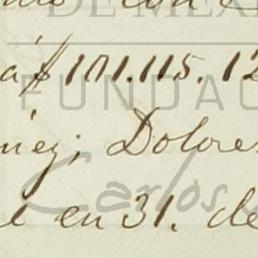 DE MÉX
á $101.115.12
FUNDAC
Dolore
Carlos
en 31. de